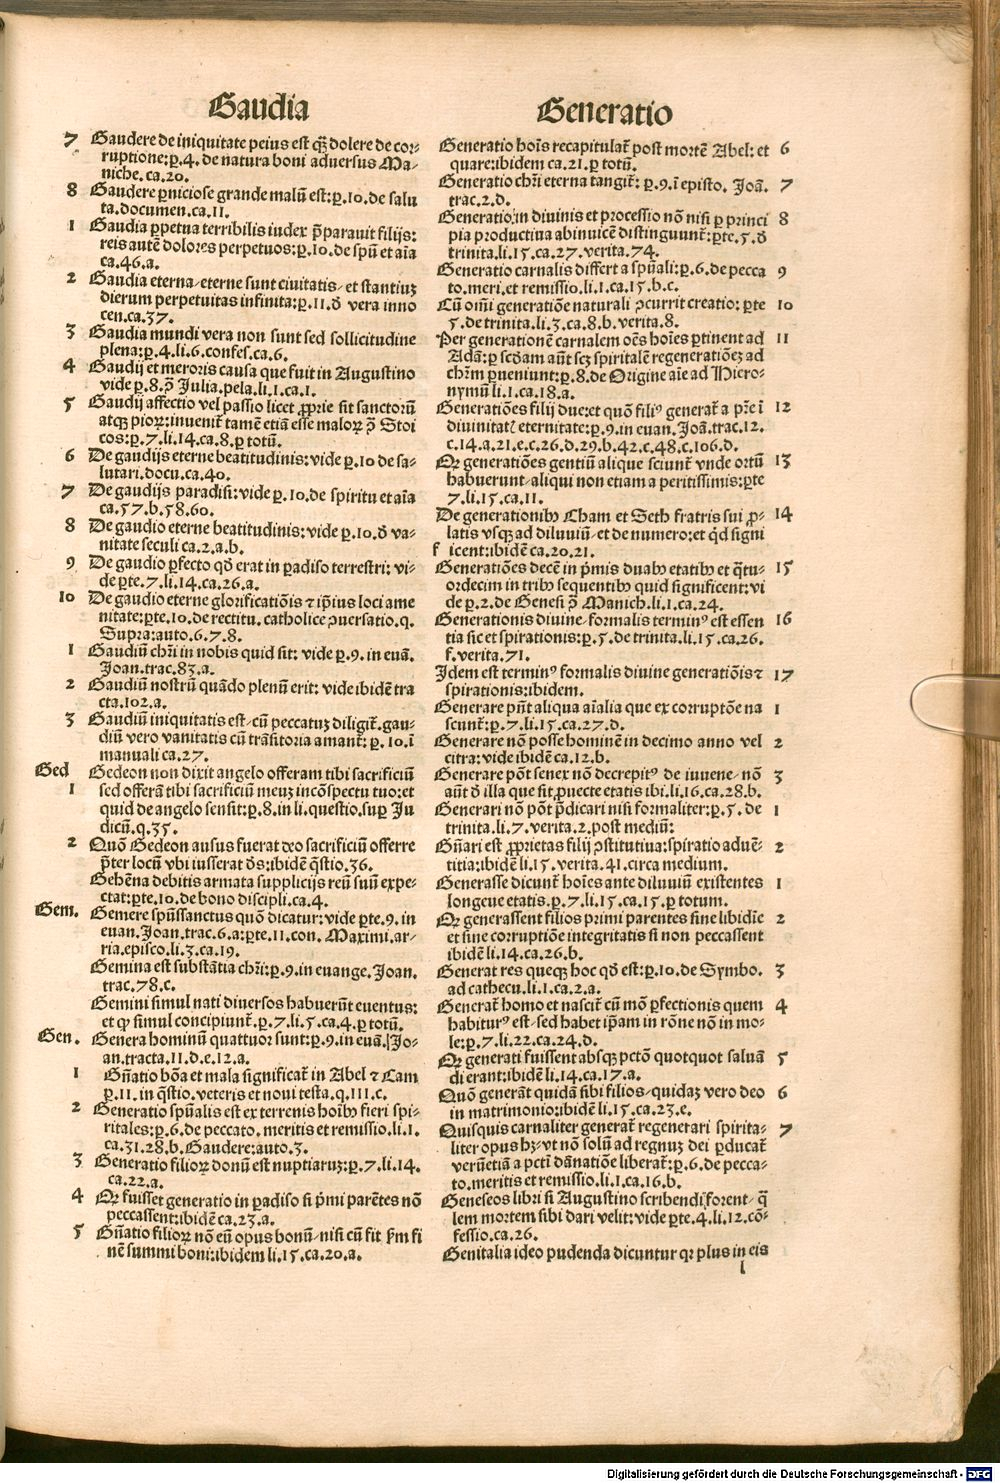 Gaudia
7 Gaudere de iniquitate peius est qȝ̃ dolere de cor-
ruptione: ꝑ.4. de natura boni aduersus Ma-
niche.ca.20.
8 Gaudere ꝑniciose grande malũ est: ꝑ.10.de salu
ta.documen.ca.11.
1 Gaudia ꝑpetua terribilis iudex p̃parauit filijs:
reis autẽ dolores perpetuos: ꝑ.10.de spũ et aĩa
ca.46.a.
2 Gaudia eterna/eterne sunt ciuitatis/et stantiuȝ
dierum perpetuitas infinita: ꝑ.11.đ vera inno
cen.ca.37.
3 Gaudia mundi vera non sunt sed sollicitudine
plena: ꝑ.4.li.6.confes.ca.6.
4 Gaudij et meroris causa que fuit in Augustino
vide ꝑ.8.ↄ̃ Julia.pela.li.1.ca.1.
5 Gaudij affectio vel passio licet ꝓprie sit sanctorũ
atqȝ pioꝝ: inuenit̃ tamẽ etiã esse maloꝝ ↄ̃ Stoi
cos: ꝑ.7.li.14.ca.8.ꝑ totũ.
6 De gaudijs eterne beatitudinis: vide ꝑ.10 de sa-
lutari.docu.ca.40.
7 De gaudijs paradisi: vide ꝑ.10.de spiritu et aĩa
ca.57.b.58.60.
8 De gaudio eterne beatitudinis: vide ꝑ.10.đ va-
nitate seculi ca.2.a.b.
9 De gaudio ꝑfecto qđ erat in ꝑadiso terrestri: vi-
de ꝑte.7.li.14.ca.26.a.
10 De gaudio eterne glorificatiõis ⁊ ip̃ius loci ame
nitate: ꝑte.10.de rectitu. catholice ↄuersatio.q.
Supra: auto.6.7.8.
1 Gaudiũ chr̃i in nobis quid sit: vide ꝑ.9. in euã.
Joan.trac.83.a.
2 Gaudiũ nostrũ quãdo plenũ erit: vide ibidẽ tra
cta.102.a.
3 Gaudiũ iniquitatis est/cũ peccatuȝ diligit̃.gau-
diũ vero vanitatis cũ trãsitoria amant̃: ꝑ.10.ĩ
manuali ca.27.
Ged
1 Gedeon non dixit angelo offeram tibi sacrificiũ
sed offerã tibi sacrificiũ meuȝ incõspectu tuo: et
quid de angelo sensit: ꝑ.8.in li.questio.suꝑ Ju
dicũ.q.35.
2 Quõ Gedeon ausus fuerat deo sacrificiũ offerre
p̃ter locũ vbi iusserat đs: ibidẽ q̃stio.36.
Gehẽna debitis armata supplicijs reũ suũ expe-
ctat: ꝑte.10.de bono discipli.ca.4.
Gem. Gemere spũssanctus quõ dicatur: vide ꝑte.9. in
euan.Joan.trac.6.a: ꝑte.11.con. Maximi.ar-
ria.episco.li.3.ca.19.
Gemina est substãtia chr̃i: ꝑ.9.in euange. Joan.
trac.78.c.
Gemini simul nati diuersos habuerũt euentus:
et ꝙ simul concipiunt̃.ꝑ.7.li.5.ca.4.ꝑ totũ.
Gen. Genera hominũ quattuor sunt: ꝑ.9.in euã.Jo-
an.tracta.11.d.e.12.a.
1 Gñatio bõa et mala significat̃ in Abel ⁊ Cam
ꝑ.11.in q̃stio.veteris et noui testa.q.111.c.
2 Generatio spũalis est ex terrenis hoĩbꝰ fieri spi-
ritales: ꝑ.6.de peccato.meritis et remissio.li.1.
ca.31.28.b.Gaudere: auto.3.
3 Generatio filioꝝ donũ est nuptiaruȝ: ꝑ.7.li.14.
ca.22.a.
4 Qꝛ fuisset generatio in ꝑadiso si p̃mi parẽtes nõ
peccassent: ibidẽ ca.23.a.
5 Gñatio filioꝝ nõ eũ opus bonũ/nisi cũ fit ẜm fi
nẽ summi boni: ibidem li.15.ca.20.a.
Generatio
Generatio hoĩs recapitulat̃ post mortẽ Abel: et 6
quare: ibidem ca.21.ꝑ totũ.
Generatio chr̃i eterna tangit̃: ꝑ.9.ĩ episto. Joã. 7
trac.2.d.
Generatio in diuinis et processio nõ nisi ꝑ princi 8
pia productiua abinuicẽ distinguunt̃: ꝑte.5.đ
trinita.li.15.ca.27.verita.74.
Generatio carnalis differt a spũali: ꝑ.6.de pecca 9
to.meri.et remissio.li.1.ca.15.b.c.
Cũ omĩ generatiõe naturali ↄcurrit creatio: ꝑte 10
5.de trinita.li.3.ca.8.b.verita.8.
Per generationẽ carnalem oẽs hoĩes ꝑtinent ad 11
Adã: ꝑ scđam aũt scȝ spiritalẽ regeneratiõeȝ ad
chr̃m ꝑueniunt: ꝑ.8.de Origine aĩe ad Hiero-
nymũ li.1.ca.18.a.
Generatiões filij due: et quõ filiꝰ generat̃ a pr̃e ĩ 12
diuinitat̃ eternitate: ꝑ.9.in euan. Joã.trac.12.
c.14.a.21.e.c.26.d.29.b.42.c.48.c.106.d.
Qꝛ generatiões gentiũ alique sciunt̃ vnde ortũ 13
habuerunt/aliqui non etiam a peritissimis: ꝑte
7.li.15.ca.11.
De generationibꝰ Cham et Seth fratris sui ꝓ- 14
latis vsqȝ ad diluuiũ/et de numero: et q̃d signi
f icent: ibidẽ ca.20.21.
Generatiões decẽ in p̃mis duabꝰ etatibꝰ et q̃tu- 15
ordecim in tribꝰ sequentibꝰ quid significent: vi
de ꝑ.2.de Genesi ↄ̃ Manich.li.1.ca.24.
Generationis diuine/formalis terminꝰ est essen 16
tia sic et spirationis: ꝑ.5.de trinita.li.15.ca.26.
f.verita.71.
Idem est terminꝰ formalis diuine generatiõis ⁊ 17
spirationis: ibidem.
Generare pñt aliqua aĩalia que ex corruptõe na 1
scunt̃: ꝑ.7.li.15.ca.27.d.
Generare nõ posse hominẽ in decimo anno vel 2
citra: vide ibidẽ ca.12.b.
Generare põt senex nõ decrepitꝰ de iuuene/nõ 3
aũt đ illa que sit ꝓuecte etatis ibi.li.16.ca.28.b.
Generari nõ põt p̃dicari nisi formaliter: ꝑ.5.de 1
trinita.li.7.verita.2.post mediũ:
Gñari est ꝓprietas filij ↄstitutiua: spiratio aduẽ- 2
titia: ibidẽ li.15.verita.41.circa medium.
Generasse dicunt̃ hoĩes ante diluuiũ existentes 1
longeue etatis.ꝑ.7.li.15.ca.15.ꝑ totum.
Qꝛ generassent filios primi parentes sine libidĩe 2
et sine corruptiõe integritatis si non peccassent
ibidẽ li.14.ca.26.b.
Generat res queqȝ hoc qđ est: ꝑ.10.de Symbo. 3
ad cathecu.li.1.ca.2.a.
Generat̃ homo et nascit̃ cũ mõ ꝑfectionis quem 4
habiturꝰ est/sed habet ip̃am in rõne nõ in mo-
le: ꝑ.7.li.22.ca.24.d.
Qꝛ generati fuissent absqȝ pctõ quotquot saluã 5
di erant: ibidẽ li.14.ca.17.a.
Quõ generãt quidã sibi filios/quidaȝ vero deo 6
in matrimonio: ibidẽ li.15.ca.23.e.
Quisquis carnaliter generat̃ regenerari spirita- 7
liter opus hȝ/vt nõ solũ ad regnuȝ dei ꝑducat̃
verũetiã a pctĩ dãnatiõe liberat̃: ꝑ.6.de pecca-
to.meritis et remissio.li.1.ca.16.b.
Geneseos libri si Augustino scribendi forent/q̃
lem mortem sibi dari velit: vide ꝑte.4.li.12.cõ-
fessio.ca.26.
Genitalia ideo pudenda dicuntur qꝛ plus in eis
l
Digitalisierung gefördert durch die Deutsche Forschungsgemeinschaft - DFG